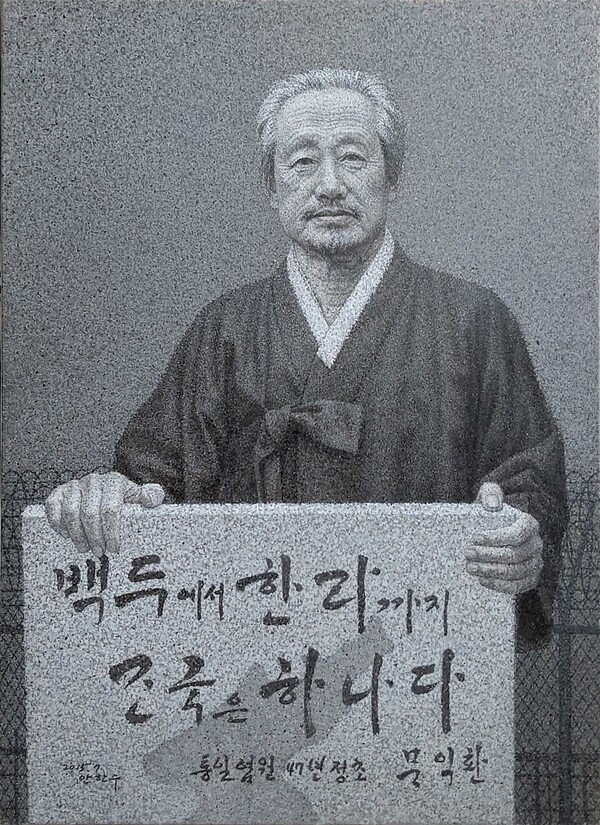 백두에서 한라까지
조국은 하나다
통일염원 47년 정초 문익환
2015. 7.
안한수